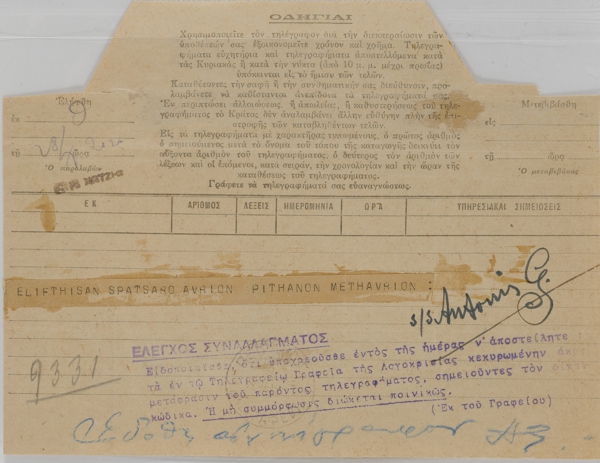 ΟΔΗΓΙΑΙ
Χρησιμοποιεῖτε τὸν τηλέγραφον διὰ τὴν διεκπεραίωσιν τῶν
ὑποθέσεών σας ἐξοικονομεῖτε χρόνον καὶ χρῆμα. Τηλεγρα-
φήματα εὐχητήρια καὶ τηλεγραφήματα ἀποστελλόμενα κατὰ
τὰς Κυριακὰς ἢ κατὰ τὴν νύκτα (ἀπὸ 10 μ. μ. μέχρι πρωΐας)
ὑπόκεινται εἰς τὸ ἥμισυ τῶν τελῶν.
Καταθέτοντες τὴν σαφῆ ἢ τὴν συνθηματικήν σας διεύθυνσιν, προ-
λαμβάνετε νὰ καθίστανται ἀνεπίδοτα τὰ τηλεγραφήματά σας.
Ἐν περιπτώσει ἀλλοιώσεως, ἢ ἀπωλείας, ἢ καθυστερήσεως τοῦ τηλε-
γραφήματος τὸ Κράτος δὲν ἀναλαμβάνει ἄλλην εὐθύνην πλὴν τῆς ἐπι-
στροφῆς τῶν καταβληθέντων τελῶν.
Εἰς τὰ τηλεγραφήματα μὲ χαρακτῆρας τυπωμένους, ὁ πρῶτος ἀριθμὸς
ὁ σημειούμενος μετὰ τὸ ὄνομα τοῦ τόπου τῆς καταγωγῆς δεικνύει τὸν
αὔξοντα ἀριθμὸν τοῦ τηλεγραφήματος, ὁ δεύτερος τὸν ἀριθμὸν τῶν
λέξεων καὶ οἱ ἑπόμενοι, κατὰ σειράν, τὴν χρονολογίαν καὶ τὴν ὥραν τῆς
καταθέσεως τοῦ τηλεγραφήματος.
Γράφετε τὰ τηλεγραφήματά σας εὐαναγνώστως.
Ἐλήφθη
ἐκ 9
τῇ ὥρᾳ
Ὁ παραλαβὼν
Μετεβιβάσθη
εἰς
τῇ ὥρᾳ
Ὁ μεταβιβάσας
ΕΚ ΑΡΙΘΜΟΣ ΛΕΞΕΙΣ ΗΜΕΡΟΜΗΝΙΑ ΩΡΑ ΥΠΗΡΕΣΙΑΚΑΙ ΣΗΜΕΙΩΣΕΙΣ
ELIFTHISAN SPATSARO AVRION PITHANON METHAVRION :
s/s. Antonis G.
ΕΛΕΓΧΟΣ ΣΥΝΑΛΛΑΓΜΑΤΟΣ
Εἰδοποιεῖσθε, ὅτι ὑποχρεοῦσθε ἐντὸς τῆς ἡμέρας ν' ἀποστείλητε
τὰ ἐν τῷ Τηλεγραφείῳ Γραφεῖα τῆς Λογοκρισίας κεκυρωμένην
μετάφρασιν τοῦ παρόντος τηλεγραφήματος, σημειοῦντες τὸν
κώδικα. Ἡ μὴ συμμόρφωσις διώκεται ποινικῶς.
(Ἐκ τοῦ Γραφείου)
9331